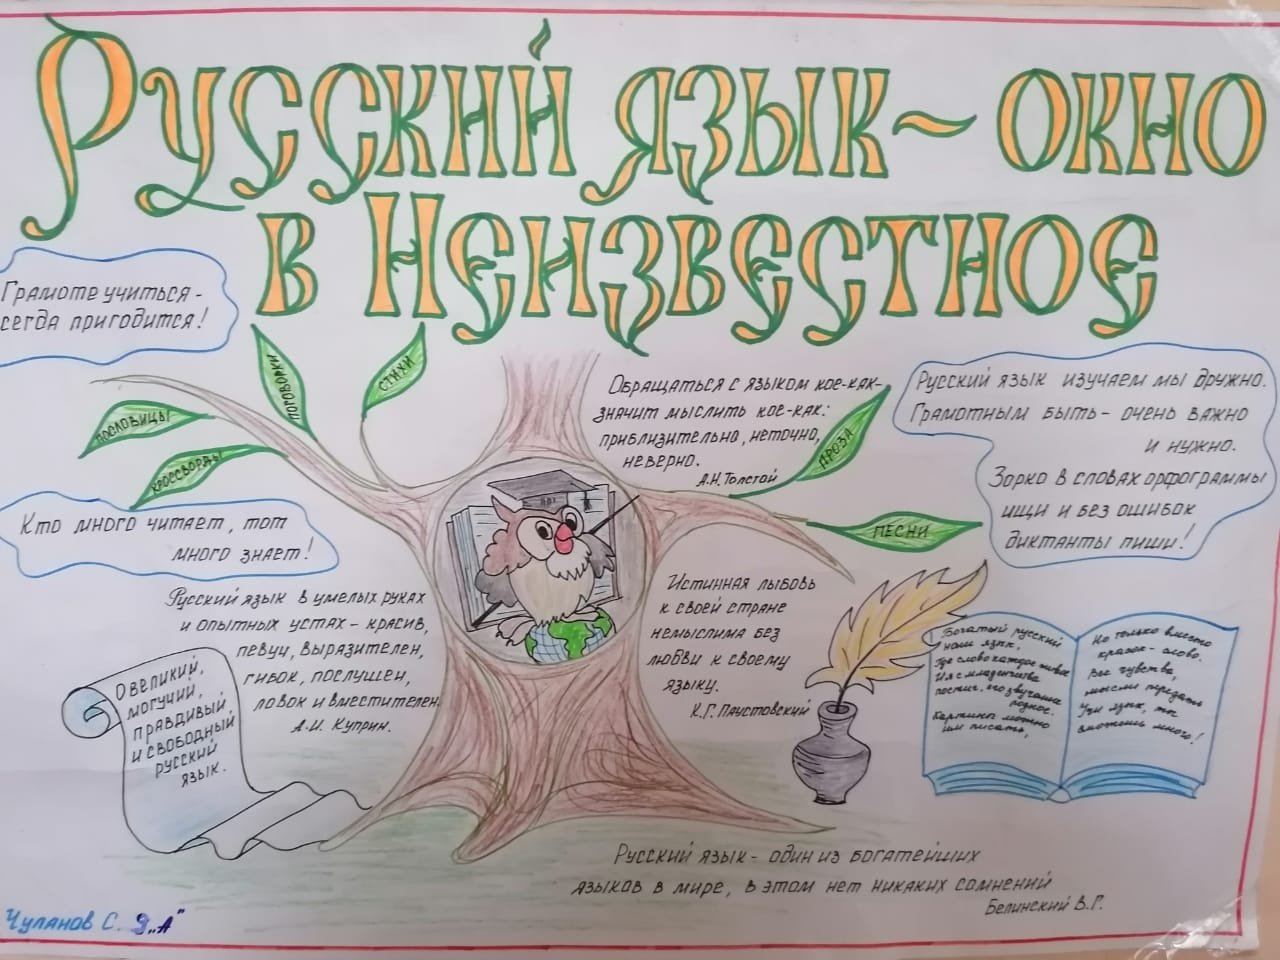 Русский язык ~ окно
в Неизвестное
Грамоте учиться -
сегда пригодится!
пословицы
поговорки
стихи
кроссворды
Кто много читает, тот
много знает!
Обращаться с языком кое-как-
значит мыслить кое-как:
приблизительно, неточно,
неверно.
А.Н.Толстой
проза
песни
Русский язык изучаем мы дружно.
Грамотным быть - очень важно
и нужно.
Зорко в словах орфограммы
ищи и без ошибок
диктанты пиши!
Русский язык в умелых руках
и опытных устах - красив,
певуч, выразителен,
гибок, послушен,
ловок и вместителен.
А.И. Куприн.
Истинная любовь
к своей стране
немыслима без
любви к своему
языку.
К.Г. Паустовский
О великий,
могучий,
правдивый,
и свободный
русский
язык.
Богатый русский
наш язык,
Где слово каждое живое
И я с младенчества
постиг, его звучание
родное.
Картины можно
им писать,
Но только вместо
красок - слово.
Все чувства,
мысли передать
Учи язык, ты
сможешь много!
Русский язык - один из богатейших
языков в мире, в этом нет никаких сомнений
Белинский В.Г.
Чуланов С. 9 „А"